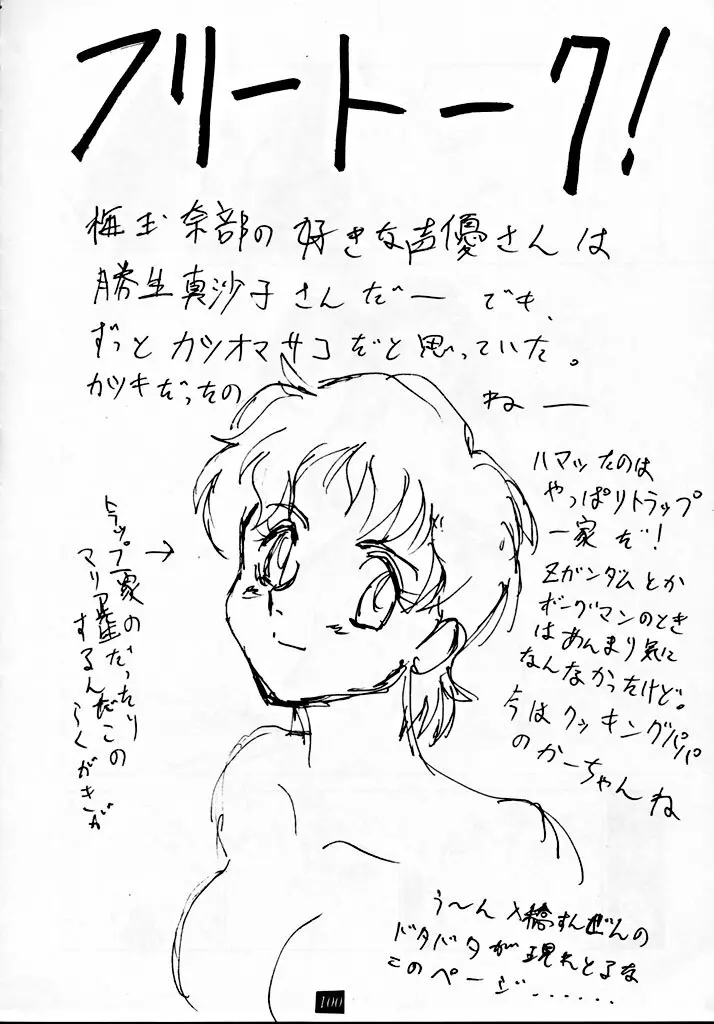 フリートーク!
梅玉奈部の好きな声優さんは
勝生真沙子さんだー でも、
ずっとカツオマサコだと思っていた。
カツキだったの
ねー
ハマッたのは
やっぱりトラップ
一家だ!
Zガンダムとか
ボーグマンのとき
はあんまり気に
なんなかったけど。
今はクッキングパパ
のかーちゃんね
→
トラップ一家の
マリア先生だったり
するんだこの
らくがきが
う〜ん〆橋すんぜんの
ドタバタが現れとるな
このページ......
100